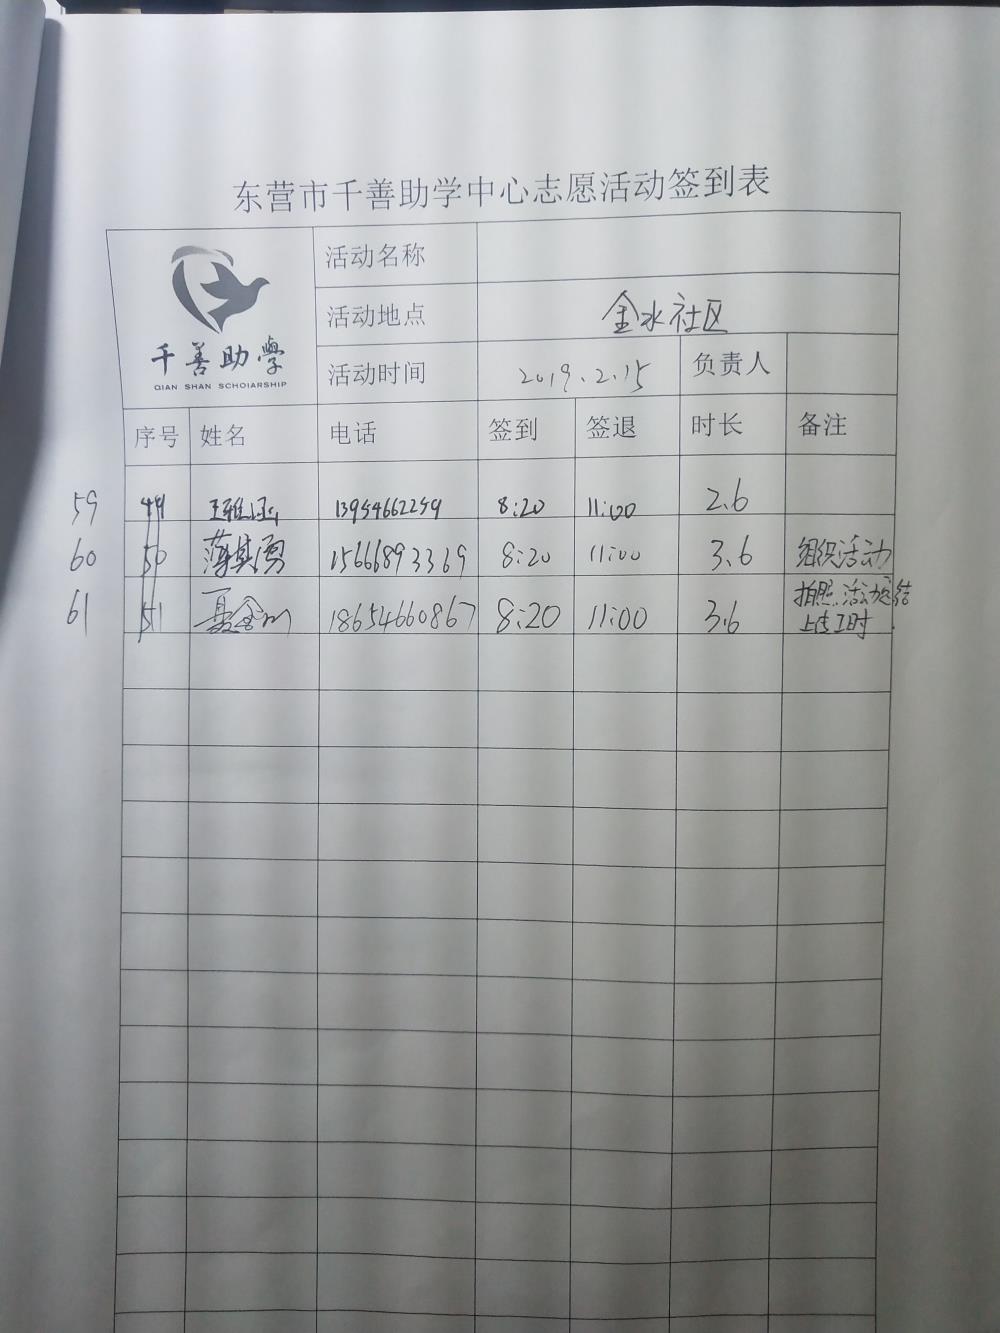 东营市千善助学中心志愿活动签到表
千善助學
QIAN SHAN SCHOIARSHIP
活动名称
活动地点 金水社区
活动时间 2019.2.15 负责人
序号 姓名 电话 签到 签退 时长 备注
59 49 王雅涵 13954662259 8:20 11:00 2.6
60 50 薄其勇 15666893369 8:20 11:00 3.6 组织活动
61 51 聂金川 18654660867 8:20 11:00 3.6 拍照.活动总结
上传工时.